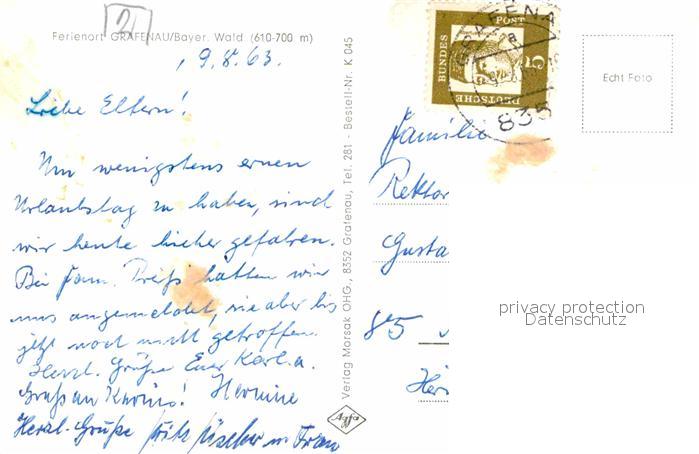 2
Ferienort GRAFENAU/Bayer. Wald (610-700 m)
, 9.8.63.
Liebe Eltern!
Um wenigstens einen
Urlaubstag zu haben, sind
wir heute hierher gefahren.
Bei Fam. hatten wir
uns angemeldet, sie aber bis
jetzt noch nicht getroffen.
Herzl. Grüße Euer Karl u.
Hermine
Gruß an !
Herzl. Grüße Fritz u. Frau
Verlag Morsak OHG., 8352 Grafenau, Tel. 281 - Bestell-Nr. K 045
Agfa
DEUTSCHE
BUNDES
POST
5
GRAFENA
2a
835
Echt Foto
Familie
Rektor
Gusta
85
privacy protection
Datenschutz